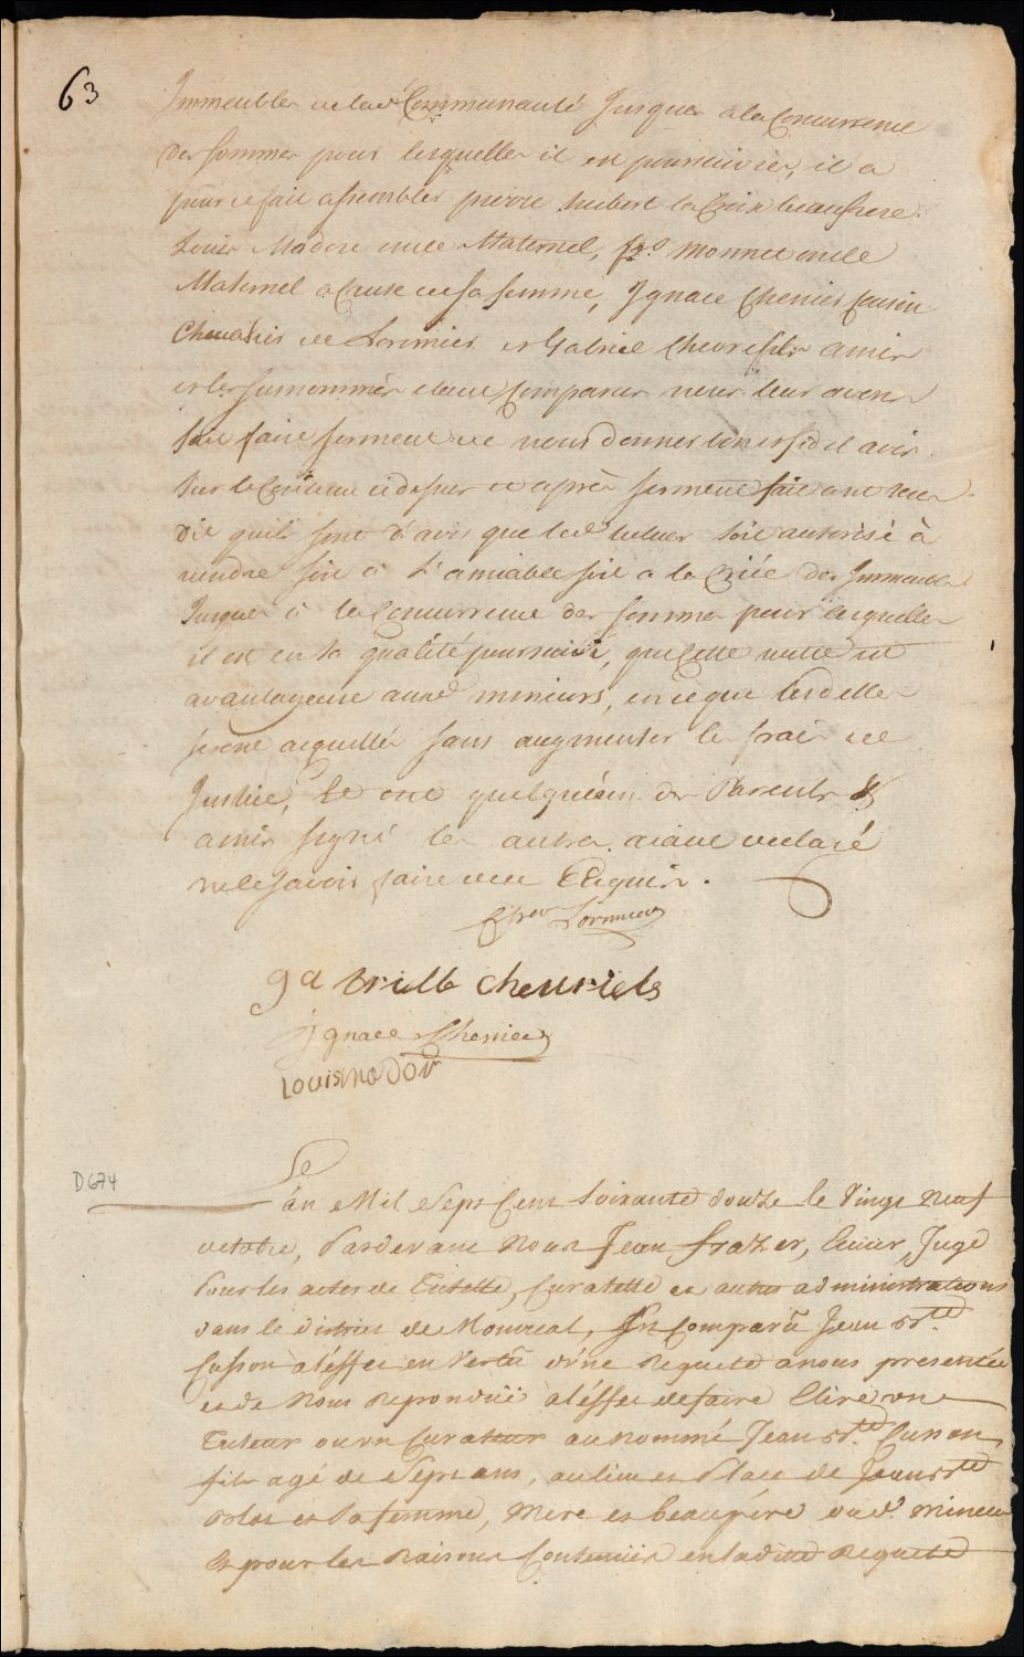 63
Immeubles de lad Communauté Jusques a la Concurrence
Des sommes pour lesquelles il est poursuivies, il a
pour ce fait assembler pierre hubert la Croix beaufrere
Louis Madore oncle Maternel, monnet oncle
Maternel a Cause de sa femme, Ignace Chenier Cousin
Chevalier de Lorimier et Gabriel Chevrefils amis
et les surnommés etant Comparus nous leur avons
fait faire serment de nous donner bon et fidel avis
sur le Contenu cidessus et après serment fait ont tous
dit quils sont d'avis que led tuteur soit autorisé à
vendre soit à l'amiable soit a la Criée des Immeubles
Jusques à la Concurrence des sommes pour lesquelles
il est en sa qualité poursuivi, que Cette vente est
avantageuse auxd mineurs, en ce que les dettes
seront acquittés sans augmenter les frais de
Justice, Et ont quelqu'un des Parents &
amis signé les autres aiant declaré
ne le savoir faire de ce Enquis.
Chev Lorimier
ga brielle cheuriels
Ignace Chenier
Louis mador
D674
Le
an Mil Sept Cent Soixante douze le Vingt Neuf
octobre, Pardevant Nous Jean frazer, Ecuier, Juge
Pour les actes de Tutelle, Curatelle et autres administrations
dans le district de Montreal, Est Comparü Jean Bte
Cusson à l'éffet en Vertü d'une Requete a nous presentée
et de Nous Repondüe à l'éffet de faire Elire un
Tuteur ou un Curateur au nommé Jean Bte Cusson
fils agé de Sept ans, au lieu et Place de Jean Bte
et sa femme, Mere et beaupére dud. Mineur
Et pour les Raisons Contenües en laditte Requete